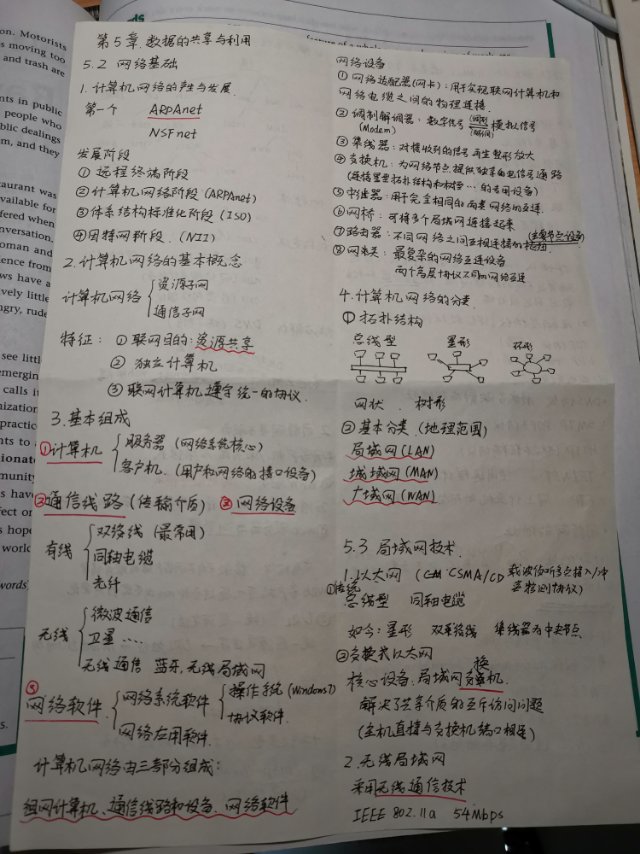 第5章.数据的共享与利用
5.2 网络基础
1.计算机网络的产生与发展.
第一个 ARPAnet
NSFnet
发展阶段
① 远程终端阶段
②计算机网络阶段(ARPAnet)
③体系结构标准化阶段(ISO)
④因特网阶段.(NII)
2.计算机网络的基本概念
计算机网络 资源子网
通信子网
特征: ①联网目的:资源共享
② 独立计算机
③ 联网计算机遵守统一的协议.
3.基本组成
①计算机 服务器(网络系统核心)
客户机.(用户和网络的接口设备)
②通信线路(传输介质) ③网络设备
有线 双绞线(最常用)
同轴电缆
光纤
无线 微波通信
卫星……
无线通信 蓝牙,无线局域网
网络软件. 网络系统软件 操作系统(Windows7)
协议软件.
网络应用软件.
计算机网络由三部分组成:
组网计算机、通信线路和设备、网络软件
网络设备
①网络适配器(网卡):用于实现联网计算机和
网络电缆之间的物理连接.
②调制解调器:数字信号 调制 解调 模拟信号
(Modem)
③集线器:对接收到的信号再生整形放大
④交换机:为网络节点提供独享的电信号通路
(连接星型拓扑结构和树型…的常用设备)
⑤中继器:用于完全相同的两类网络的互连.
⑥网桥:可将多个局域网连接起来
⑦路由器:不同网络之间互相连接的枢纽 (主要节点设备)
⑧网关: 最复杂的网络互连设备
两个高层协议不同的网络互连
4.计算机网络的分类
①拓扑结构
总线型 星形 环形
网状 . 树形
②基本分类(地理范围)
局域网(LAN)
城域网(MAN)
广域网(WAN)
5.3 局域网技术.
1.以太网 (CSMA/CD 载波侦听多路接入/冲
突检测协议)
①传统
总线型 同轴电缆
如今:星形 双绞线 集线器为中央节点
②交换式以太网
核心设备:局域网交换机.
解决了共享介质的互斥访问问题
(主机直接与交换机端口相连)
2.无线局域网
采用无线通信技术
IEEE 802.11a 54Mbps
on. Motorists
s moving too
and trash are
nts in public
people who
blic dealings
m, and they
aurant was
available for
fered when
nversation,
oman and
ence from
ws have a
vely little
ngry, rude
see littl
emergin
calls it
nization
practic
nts to
ionate
munity
s have
fect or
s hope
world
words